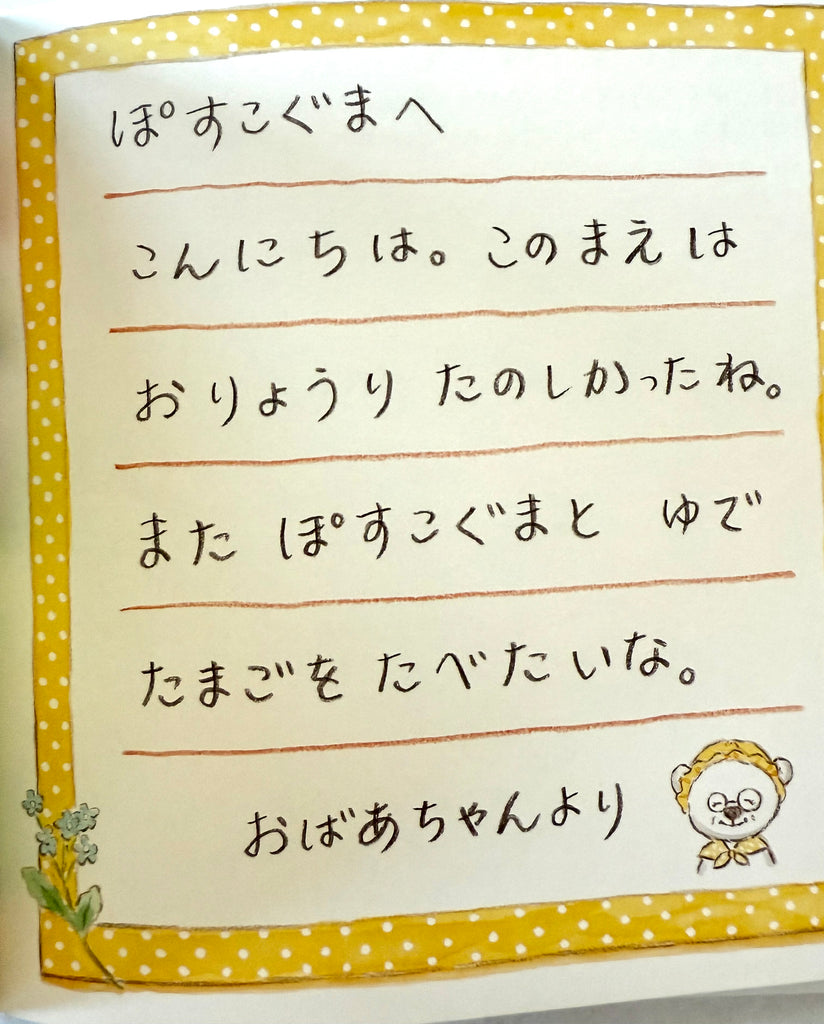 ぽすこぐまへ
こんにちは。このまえは
おりょうり たのしかったね。
また ぽすこぐまと ゆで
たまごを たべたいな。
おばあちゃんより